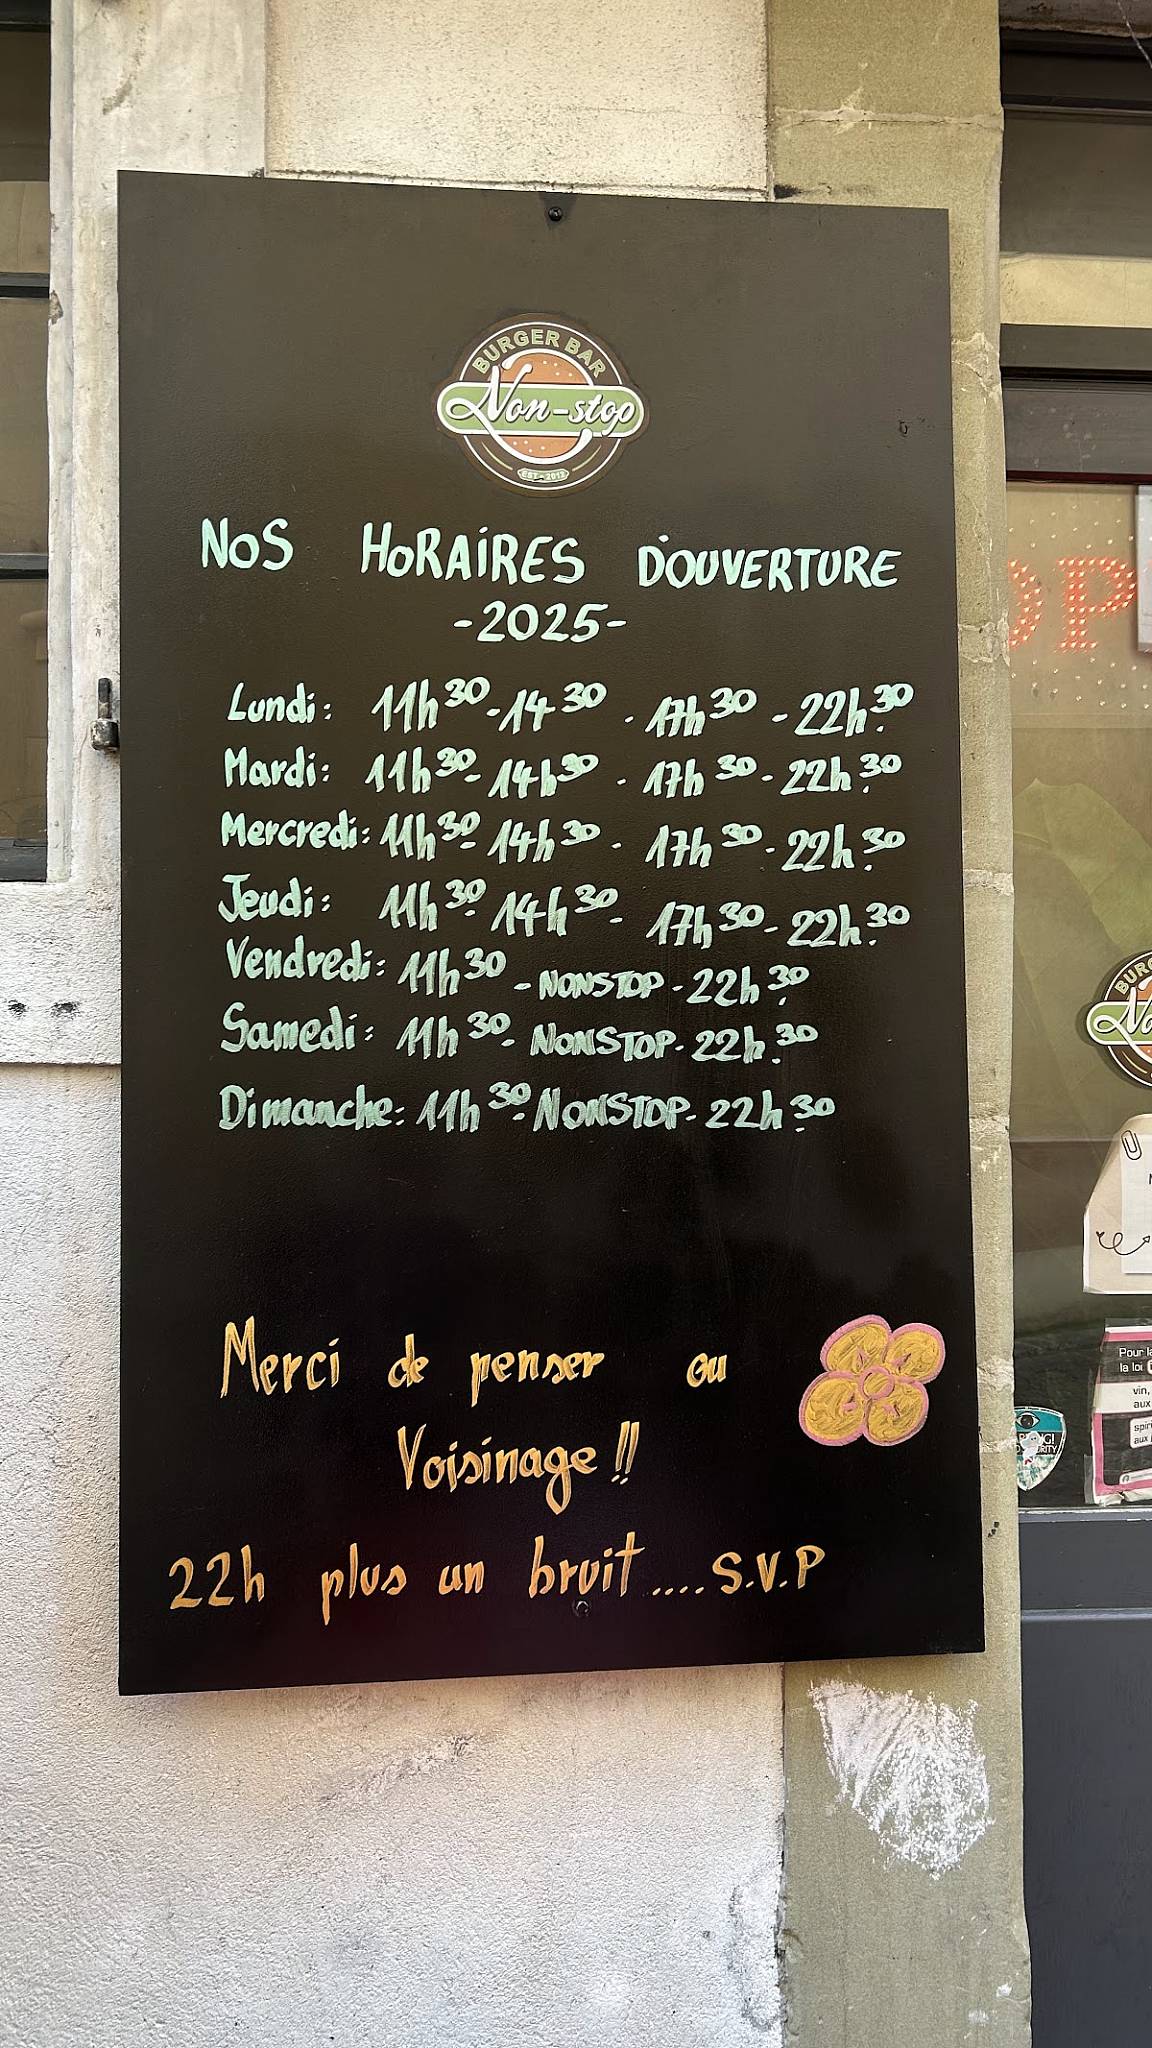 BURGER BAR
Non-stop
EST - 2013
NOS HORAIRES D'OUVERTURE
-2025-
Lundi: 11h30-14 30 - 17h30 - 22h30
Mardi: 11h30- 14h30 - 17h30 - 22h30
Mercredi: 11h30 14h30 - 17h30 - 22h30
Jeudi: 11h30 14h30 - 17h30 - 22h30
Vendredi: 11h30 - NONSTOP - 22h30
Samedi: 11h30 - NONSTOP - 22h30
Dimanche: 11h30 - NONSTOP - 22h30
Merci de penser au
Voisinage !!
22h plus un bruit .... S.V.P
OP
BURG
No
Pour la
la loi
vin,
aux
spiri
aux